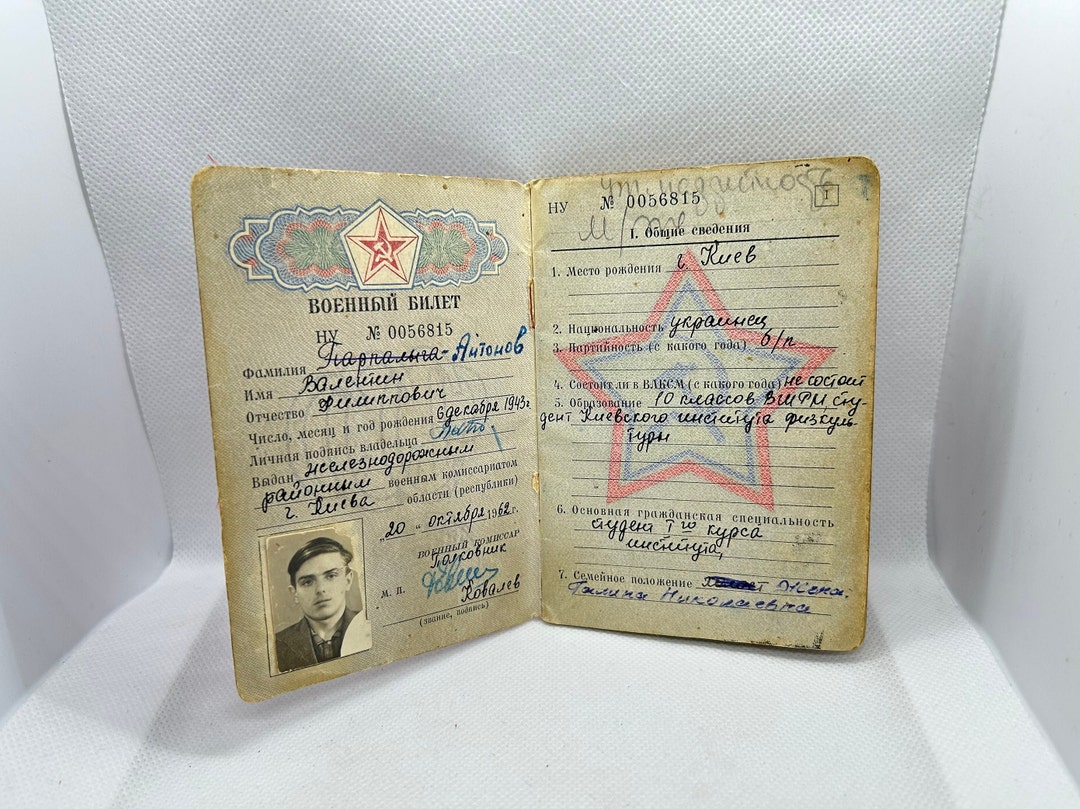 ВОЕННЫЙ БИЛЕТ
НУ № 0056815
Фамилия Антонов
Имя Валентин
Отчество Филиппович
Число, месяц и год рождения 6 декабря 1943 г
Личная подпись владельца
Выдан железнодорожным
районным военным комиссариатом
г. Киева области (республики)
„20„ октября 1962 г.
ВОЕННЫЙ КОМИССАР
Полковник
М. П. Ковалев
(звание, подпись)
НУ № 0056815 1
м/
I. Общие сведения
1. Место рождения г. Киев
2. Национальность украинец
3. Партийность (с какого года) б/п
4. Состоит ли в ВЛКСМ (с какого года) не состоит
5. Образование 10 классов ВШРМ сту-
дент Киевского института физкуль-
туры
6. Основная гражданская специальность
студент I го курса
института
7. Семейное положение жена.
Галина Николаевна